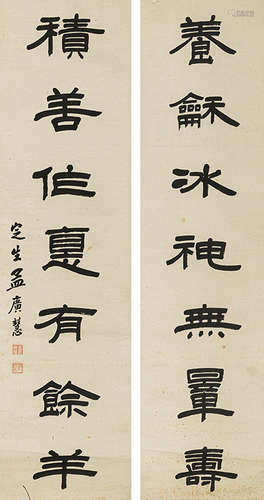 養龢冰神無量壽
積善作悳有餘羊
定生孟廣慧